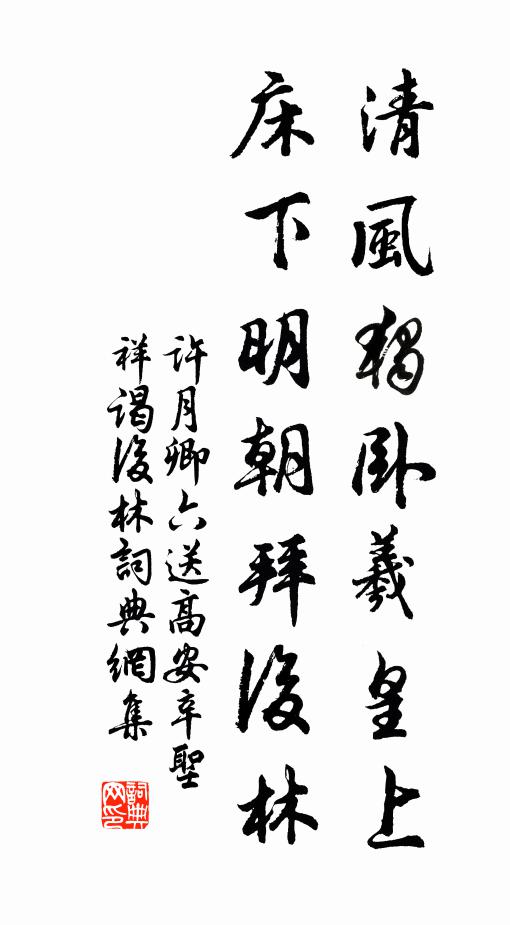 清風獨卧羲皇上
床下明朝拜後林
許月卿六送高安辛聖
祥謁後林詞典網集
詞典网印